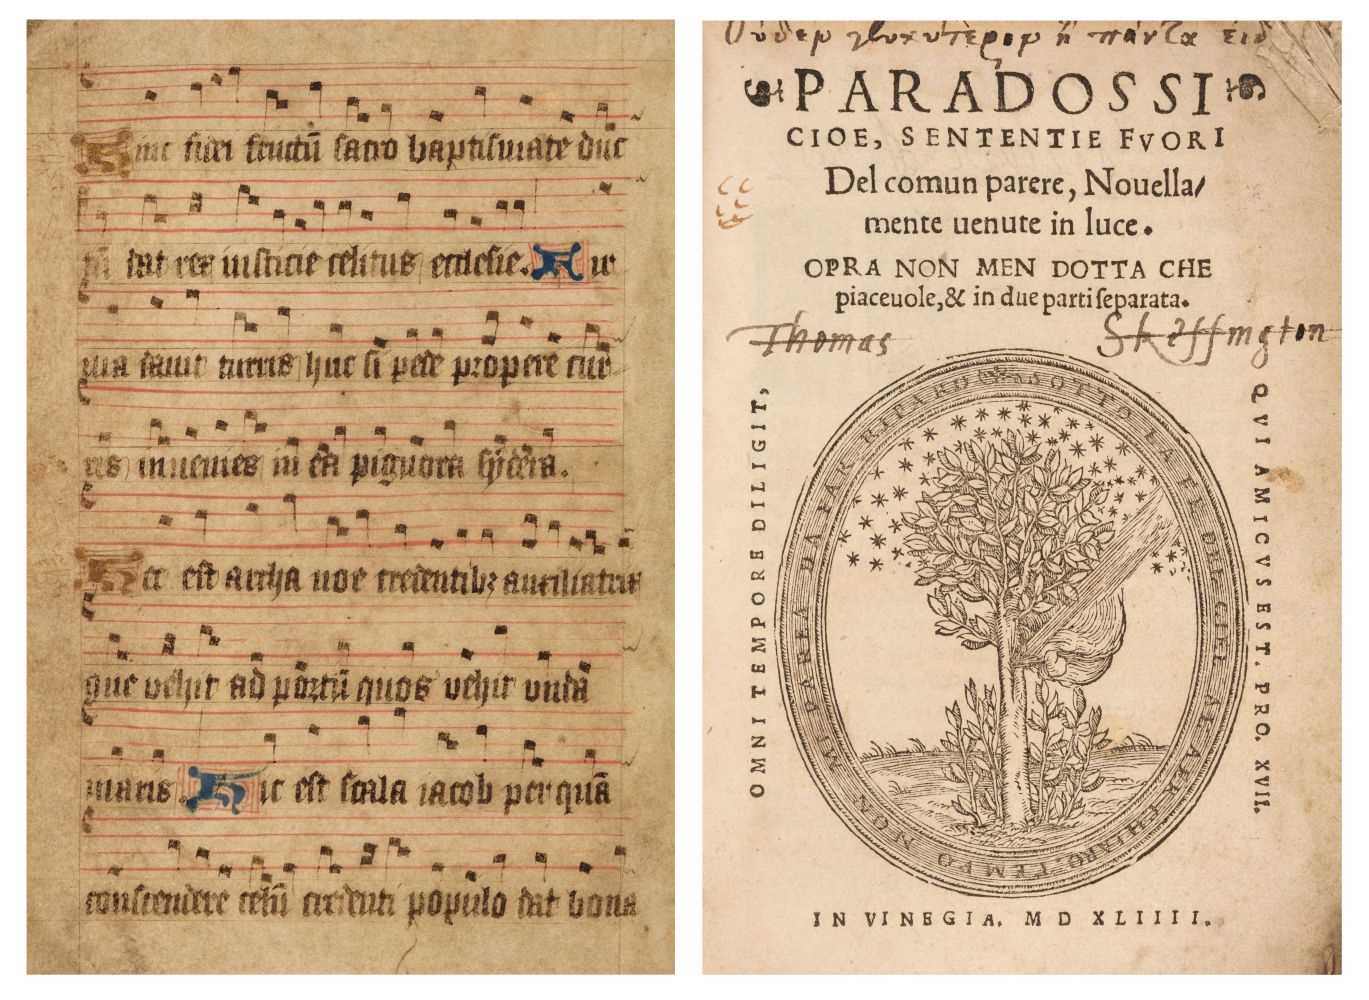 Hinc fidei scutũ sacro baptismate duc
tũ dat res iusticie celitus ecclesie. A
dauit turris huc si pede propere cur
res inuenies in ea pignora
Hec est archa noe credentibꝫ auxiliatrix
que vehit ad portũ quos vehit unda
maris. Hic est scala iacob per quã
conscendere celũ credenti populo dat bona
Ουδεμ γλυκυτερομ ἢ πάντα εἰδ
PARADOSSI
CIOE, SENTENTIE FVORI
Del comun parere, Nouella/
mente uenute in luce.
OPRA NON MEN DOTTA CHE
piaceuole,& in due parti separata.
Thomas Skeffington
OMNI TEMPORE DILIGIT,
QVI AMICVS EST. PRO. XVII.
IN VINEGIA. M D XLIIII.